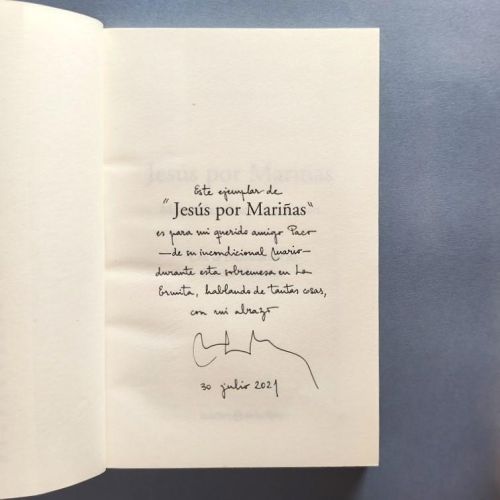 Este ejemplar de
"Jesús por Mariñas"
es para mi querido amigo Paco
—de su incondicional Mario—
durante esta sobremesa en La
Ermita, hablando de tantas cosas,
con mi abrazo
30 julio 2021
Jesús por Mariñas